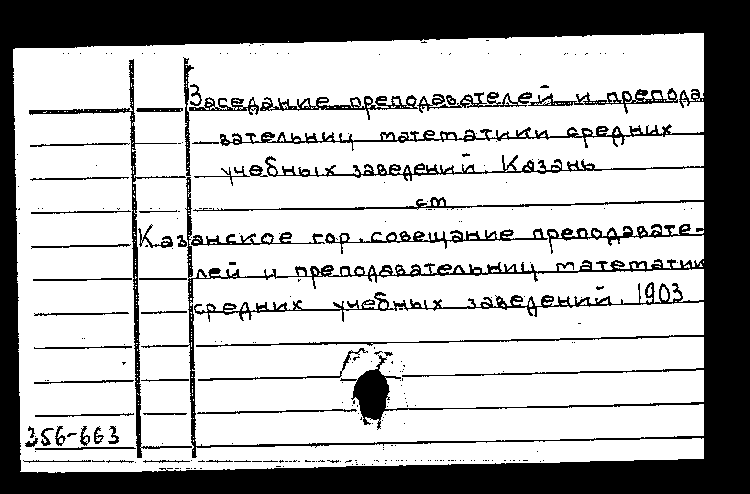 Заседание преподавателей и препода
вательниц математики средних
учебных заведений. Казань
см
Казанское гор. совещание преподавате-
лей и преподавательниц математик
средних учебных заведений. 1903
356-663